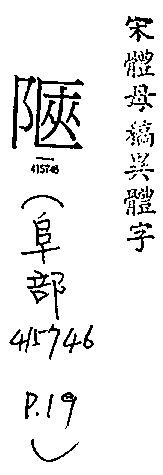 宋體母稿異體字
415746
(阜部
415746
P.19)